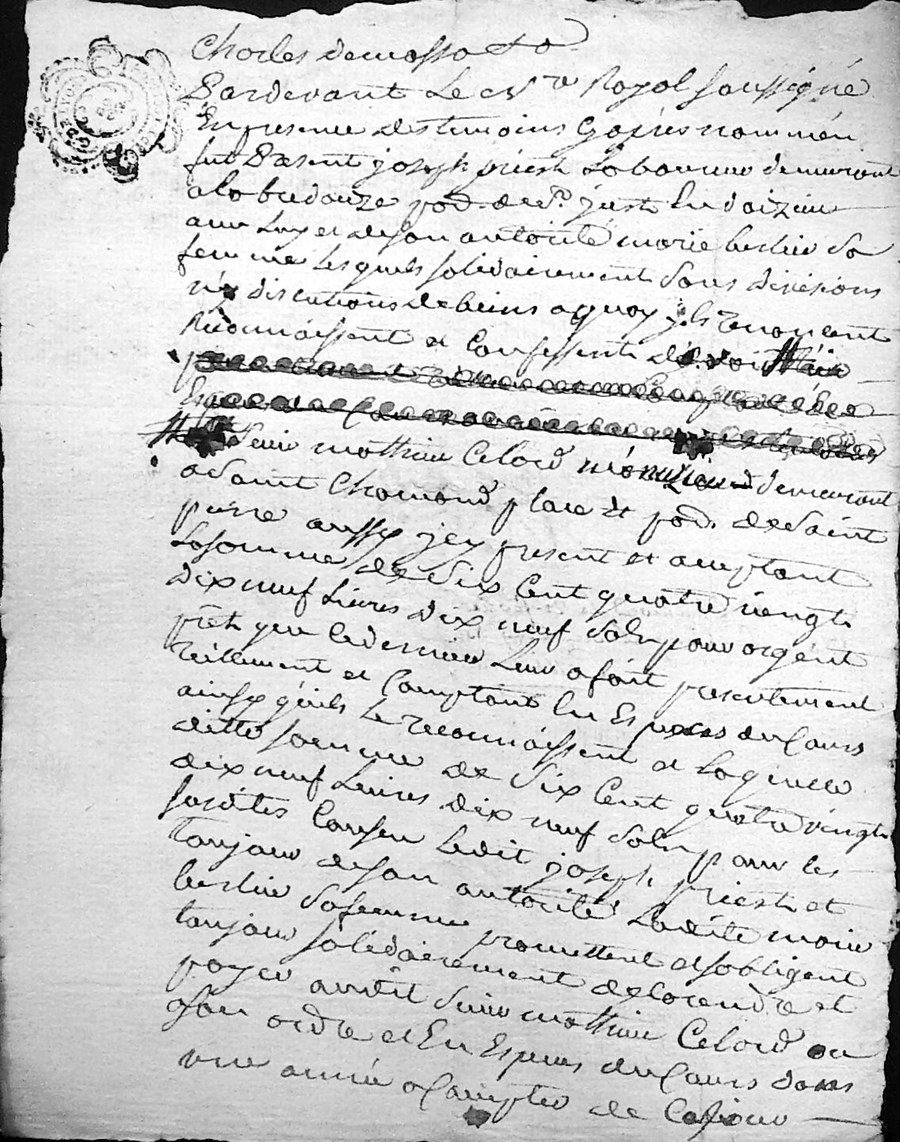 Charles Demasso
Pardevant Le Nre Royal soussigné
En presence des temoins Gapres nommés
fut Present joseph priest Laboureur demeurant
a la bredouze pod. de St. just En doizieu
avec luy et de son autorité marie berlier Sa
femme Lesquels solidairement Sans divisions
ny discutions de biens aquoy jls renoncent
Reconnaissent et Confessent devoir
Sieur mathieu Celard menuzier demeurant
a Saint Chamond place et pod. de Saint
pierre aussy jcy present et acceptant
La somme de Six Cent quatre vingt
Dix neuf Livres Dix neuf Sols pour argent
prêté que ce dernier Leur a fait presentement
réellement et Comptant En Especes du Cours
ainsy qu'ils Le reconnaissent et laquelle
ditte somme de Six Cent quatre vingt
dix neuf Livres Dix neuf Sols pour les
susdites Causes Ledit joseph priest et
toujour de son autorité Laditte marie
berlier Sa femme promettent et s'obligent
toujour solidairement de la rendre et
payer audit Sieur mathieu Celard ou
a son ordre et En Especes du Cours dans
une année a Compter de Ce jour